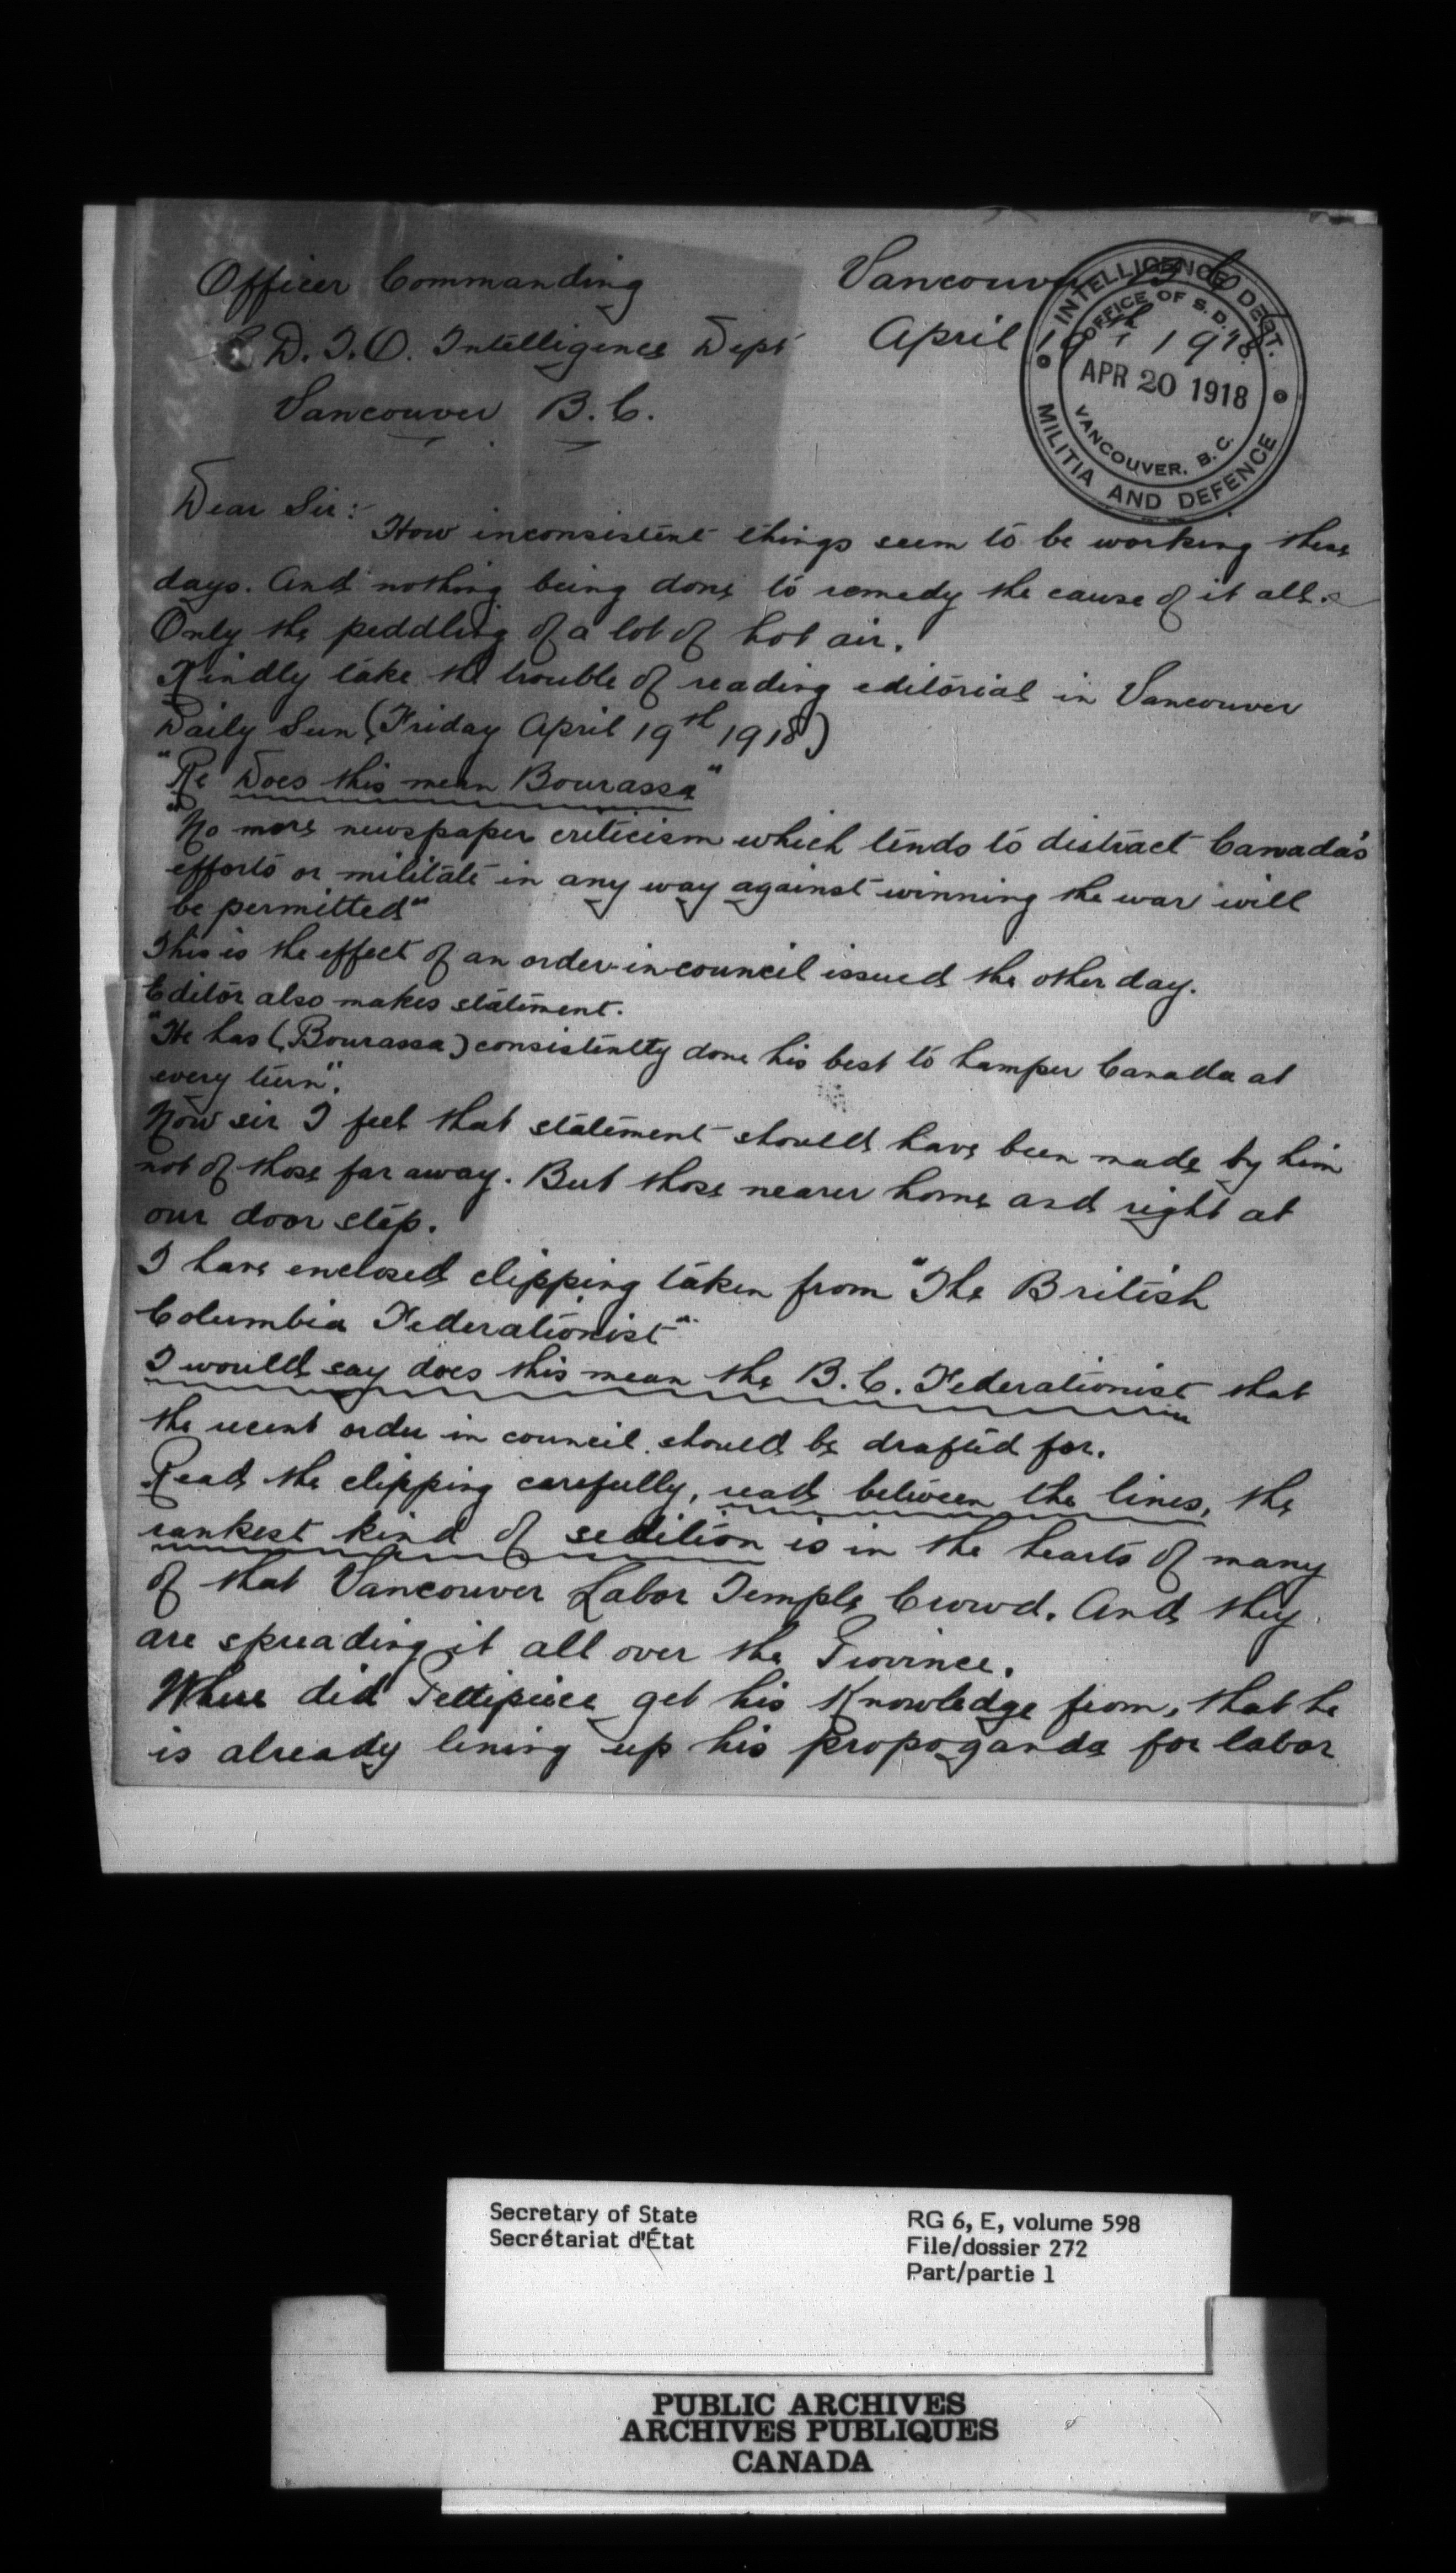 Officer Commanding
D. I. O. Intelligence Dept
Vancouver B. C.
Vancouver B C
April 19th 1918
INTELLIGENCE DEPT.
OFFICE OF S. D.
APR 20 1918
VANCOUVER, B. C.
MILITIA AND DEFENCE
Dear Sir:-
How inconsistent things seem to be working these
days. And nothing being done to remedy the cause of it all.
Only the peddling of a lot of hot air.
Kindly take the trouble of reading editorial in Vancouver
Daily Sun (Friday April 19th 1918)
"Re Does this mean Bourassa"
"No more newspaper criticism which tends to distract Canada's
efforts or militate in any way against winning the war will
be permitted"
This is the effect of an order-in-council issued the other day.
Editor also makes statement.
"He has (Bourassa) consistently done his best to hamper Canada at
every turn".
Now sir I feel that statement should have been made by him
not of those far away. But those nearer home and right at
our door step.
I have enclosed clipping taken from "The British
Columbia Federationist"
I would say does this mean the B. C. Federationist that
the recent order in council should be drafted for.
Read the clipping carefully, read between the lines, the
rankest kind of sedition is in the hearts of many
of that Vancouver Labor Temple Crowd. And they
are spreading it all over the Province.
Where did Pettipiece get his Knowledge from, that he
is already lining up his propoganda for labor
Secretary of State
Secrétariat d'État
RG 6, E, volume 598
File/dossier 272
Part/partie 1
PUBLIC ARCHIVES
ARCHIVES PUBLIQUES
CANADA